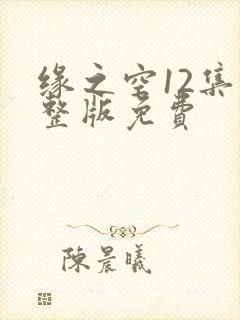 缘之空12集
整版免費
陳晨曦